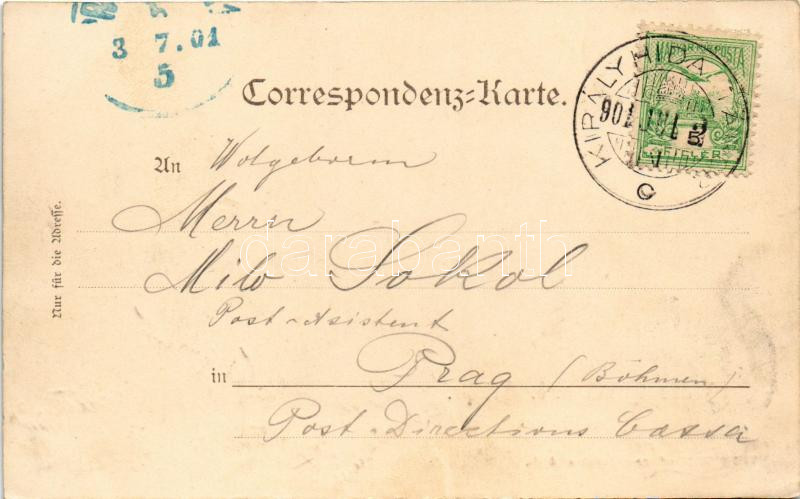 3 7.01
5
Correspondenz-Karte.
KIRÁLYHIDA
901 JUL 2
C
POSTA
5 FILLER
An Wolgeborrn
Herrn
Milo Sokol
Post-Asistent
in Prag (Böhmen)
Post-Directions Cassa
Nur für die Adresse.
darabanth